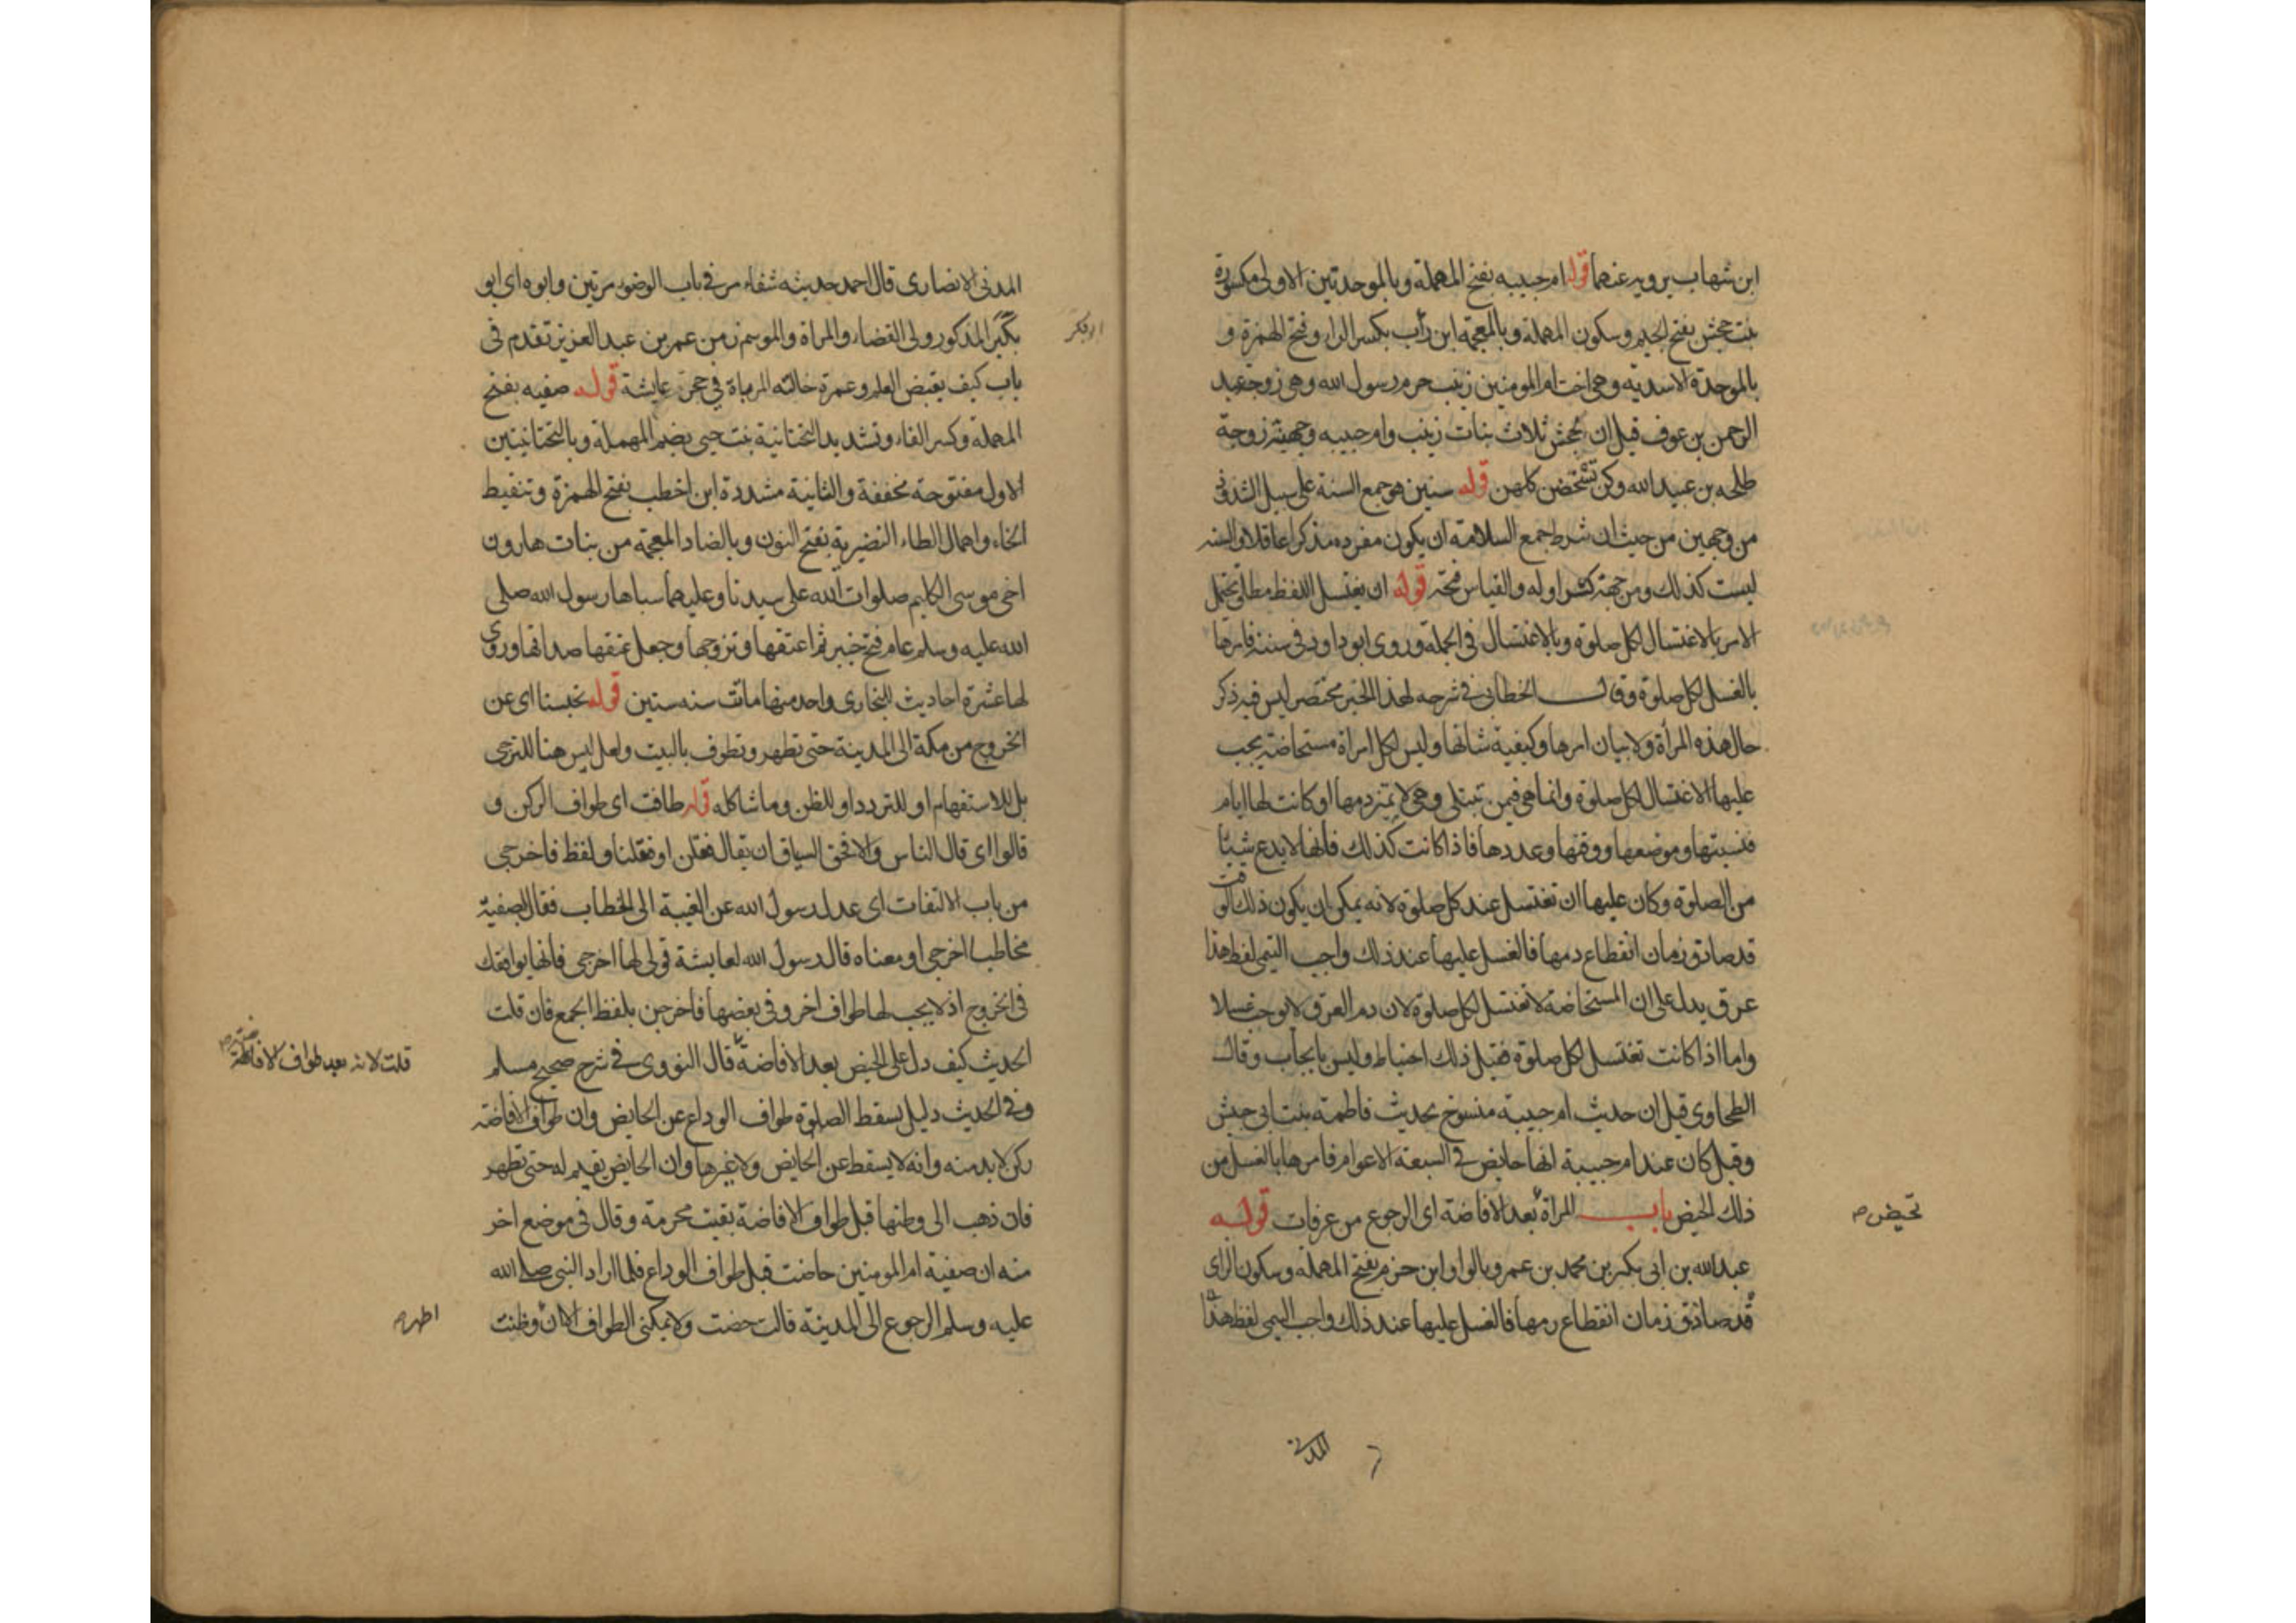 ابن شهاب يرويه عنهما قوله ام حبيبه بفتح المهملة وبالموحدتين الاولى مكسورة
بنت جحش بفتح الجيم وسكون المهملة وبالمعجمة ابن رأب بكسر الراء وفتح الهمزة و
بالموحدة الاسدية وهي اخت ام المومنين زينب حرم رسول الله وهي زوجة عبد
الرحمن بن عوف قيل ان لجحش ثلاث بنات زينب وام حبيبه وحمنة زوجة
طلحه بن عبيد الله وكن تستحضن كلهن قوله سنين هو جمع السنة على سبيل الشذوذ
من وجهين من حيث ان شرط جمع السلامة ان يكون مفرده مذكرا عاقلا والسنه
ليست كذلك ومن جهة كسر اوله والقياس فتحه قوله ان يغتسل اللفظ مطلق يحتمل
الامر بالاغتسال لكل صلوة وبالاغتسال في الجملة وروى ابو داود في سننه فامرها
بالغسل لكل صلوة وقال الخطابي في شرحه لهذا الخبر مختصر ليس فيه ذكر
حال هذه المرأة ولا بيان امرها وكيفية شانها وليس لكل امراة مستحاضة يجب
عليها الاغتسال لكل صلوة وانما هي فيمن تبتلى وهي لا تميز دمها او كانت لها ايام
فنسيتها وموضعها ووقتها وعددها فاذا كانت كذلك فانها لا يدع شيئا
من الصلوة وكان عليها ان تغتسل عند كل صلوة لانه يمكن ان يكون ذلك الوقت
قد صادق زمان انقطاع دمها فالغسل عليها عند ذلك واجب التيمى لفظ هذا
عرق يدل على ان المستحاضة لا تغتسل لكل صلوة لان دم العرق لا يوجب غسلا
واما اذا كانت تغتسل لكل صلوة فقيل ذلك احتياط وليس بايجاب وقال
الطحاوى قيل ان حديث ام حبيبة منسوخ بحديث فاطمة بنت ابى حبيش
وقيل كان عند ام حبيبة انها حايض في السبعة الاعوام فامرها بالغسل من
ذلك الحيض باب المراة بعد الافاضة اى الرجوع من عرفات قوله
تحيض
عبد الله بن ابى بكر بن محمد بن عمرو بالواو ابن حزم بفتح المهملة وسكون الزاى
قد صادق زمان انقطاع دمها فالغسل عليها عند ذلك واجب التيمى لفظ هذا
المدنى
المدنى الانصارى قال احمد حديثه شفاء مر في باب الوضوء مرتين وابوه اى ابو
بكر المذكور ولى القضاء والمراة والموسم زمن عمر بن عبد العزيز تقدم فى
باب كيف يقبض العلم وعمرة خالته المرباة في حجر عايشة قوله صفيه بفتح
المهملة وكسر الفاء وتشديد التحتانية بنت حيى بضم المهملة وبالتحتانيتين
الاول مفتوحة مخففة والثانية مشددة ابن اخطب بفتح الهمزة وتنقيط
الخاء واهمال الطاء النضيرية بفتح النون وبالضاد المعجمة من بنات هارون
اخى موسى الكليم صلوات الله على سيدنا وعليهما سباها رسول الله صلى
الله عليه وسلم عام فتح خيبر ثم اعتقها وتزوجها وجعل عتقها صداقها وروى
لها عشرة احاديث للبخارى واحد منها ماتت سنه ستين قوله تحبسنا اى عن
الخروج من مكة الى المدينة حتى تطهر وتطوف بالبيت ولعل ليس هنا للترجى
بل للاستفهام او للتردد او للظن وما شاكله قوله طافت اى طواف الركن و
قالوا اى قال الناس والا فحق السياق ان يقال فقلن او فقلنا ولفظ فاخرجى
من باب الالتفات اى عدل رسول الله عن الغيبة الى الخطاب فقال لصفية
مخاطبا اخرجى او معناه قال رسول الله لعايشة قولى لها اخرجى فانها يوافقك
فى الخروج اذ لا يجب لها طواف اخر وفى بعضها فاخرجن بلفظ الجمع فان قلت
الحديث كيف دل على الحيض بعد الافاضة قال النووى في شرح صحيح مسلم
قلت لانه بعد طواف الافاضة
وفى الحديث دليل بسقط الصلوة طواف الوداع عن الحايض وان طواف الافاضة
ركن لا بد منه وانه لا يسقط عن الحايض ولا غيرها وان الحايض يقيم له حتى تطهر
فان ذهب الى وطنها قبل طواف الافاضة بقيت محرمة وقال فى موضع اخر
منه ان صفية ام المومنين حاضت قبل طواف الوداع فلما اراد النبى صلى الله
عليه وسلم الرجوع الى المدينة قالت حضت ولا يمكنى الطواف الان وظنت
اطهر